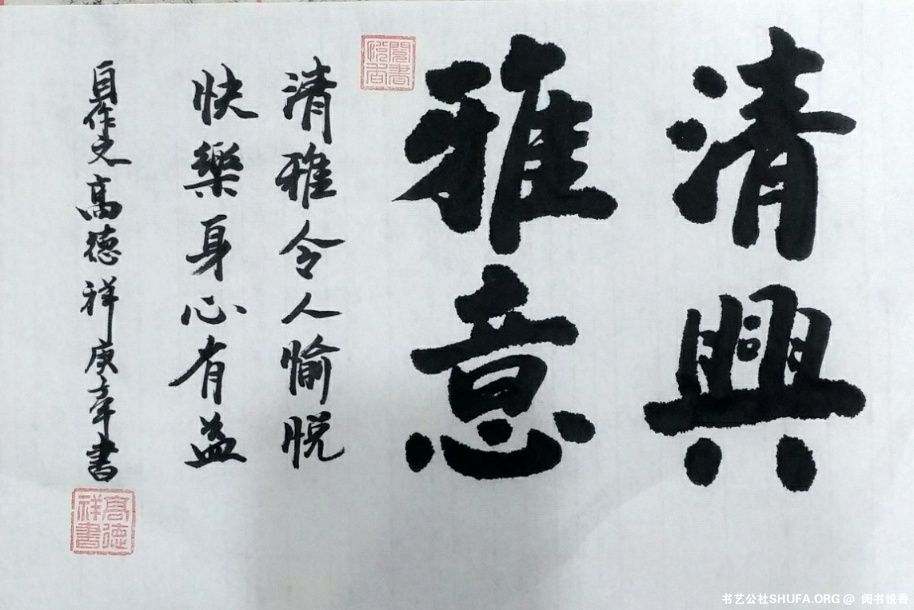 清興
雅意
清雅令人愉悅
快樂身心有益
自作文高德祥庚子年書
閱書悅香
高德祥書
书艺公社SHUFA.ORG @ 阅书悦香